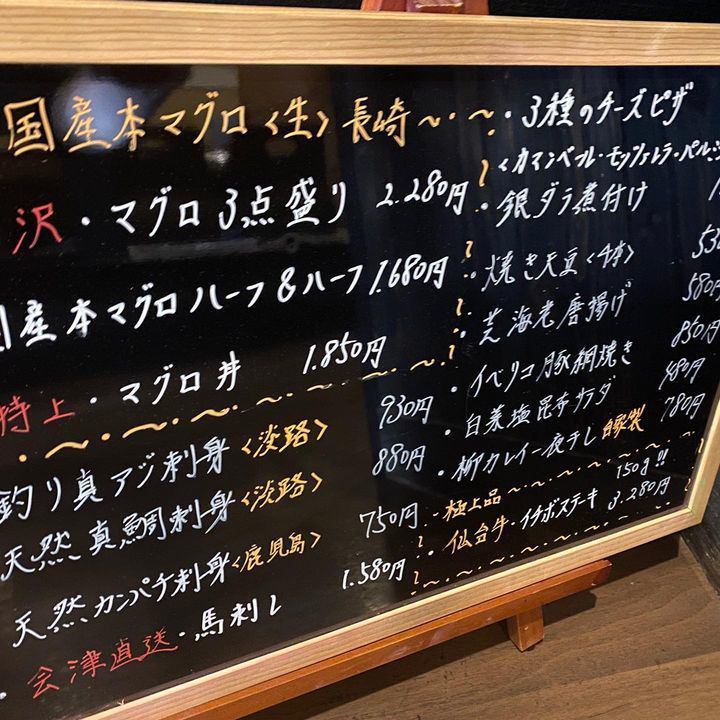 国産本マグロ〈生〉長崎
沢・マグロ3点盛り 2.280円
産本マグロハーフ&ハーフ 1.680円
特上・マグロ丼 1.850円
釣り真アジ刺身〈淡路〉 930円
天然真鯛刺身〈淡路〉 880円
天然カンパチ刺身〈鹿児島〉 750円
会津直送・馬刺し 1.580円
・3種のチーズピザ
〈カマンベール・モッツェルラ・パル
・銀ダラ煮付け
・焼き天豆〈4本〉 530
・芝海老唐揚げ 580円
・イベリコ豚網焼き 850円
・白菜塩昆布サラダ 480円
・柳カレイ一夜干し 自家製 780円
極上品
・仙台牛・イチボステーキ 150g!! 3.280円